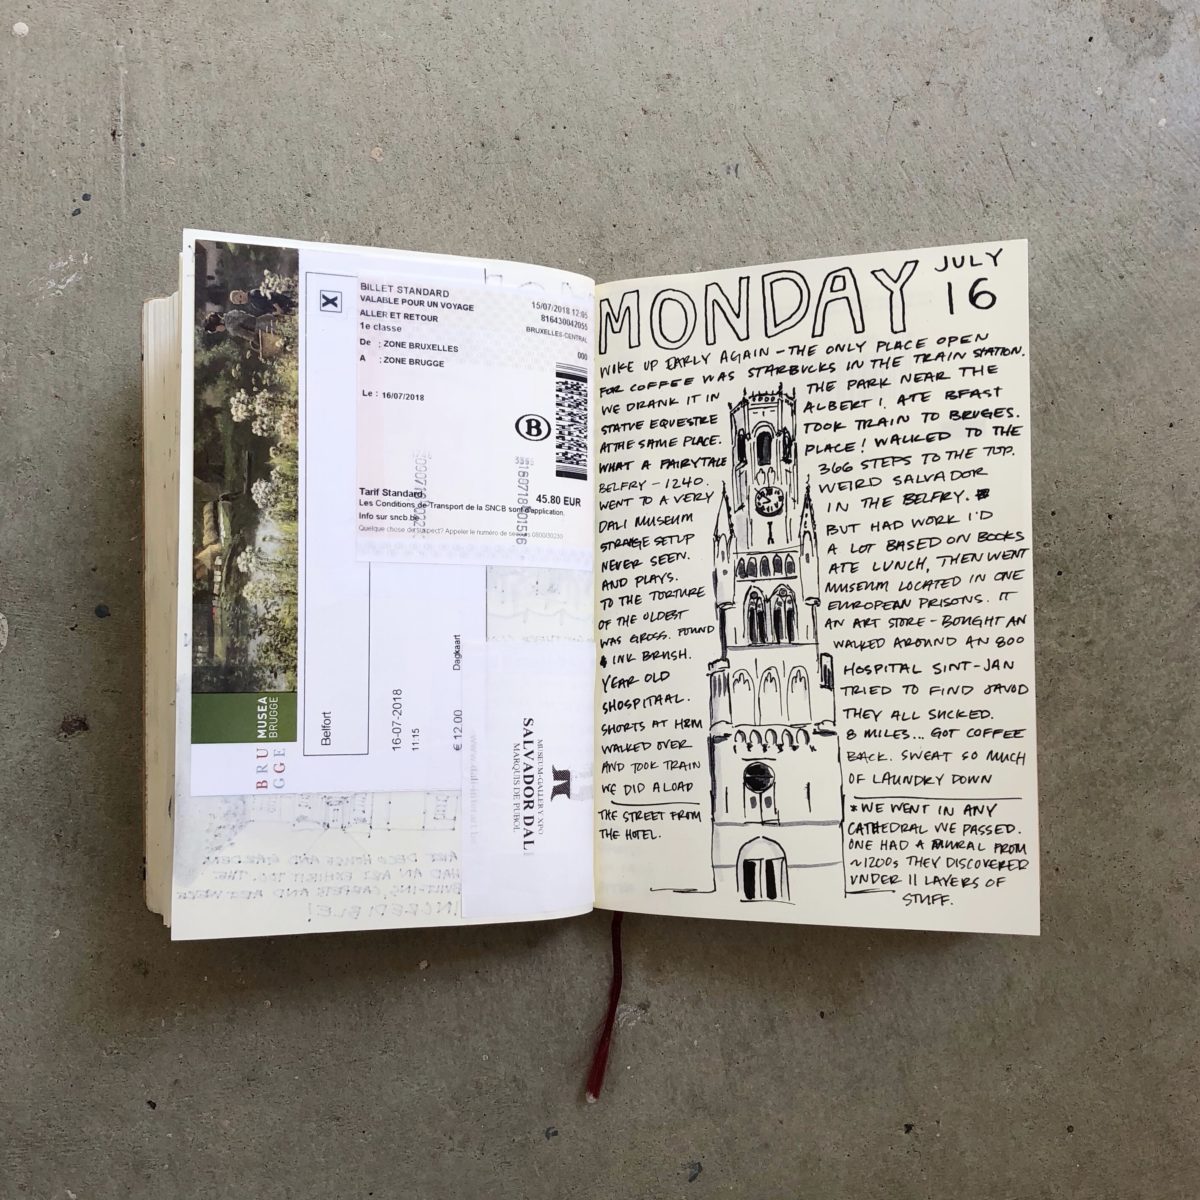 BILLET STANDARD
VALABLE POUR UN VOYAGE
ALLER ET RETOUR
1e classe
De : ZONE BRUXELLES
A : ZONE BRUGGE
Le : 16/07/2018
15/07/2018 12:05
816430042055
BRUXELLES-CENTRAL
000
B
Tarif Standard
45.80 EUR
Les Conditions de Transport de la SNCB sont d'application.
Info sur sncb.be
Quelque chose de suspect? Appeler le numéro de secours 0800/30230
MUSEA
BRUGGE
BRU
GGE
Belfort
16-07-2018
11:15
Dagkaart
€ 12.00
MUSEUM-GALLERY XPO
SALVADOR DALI
MARQUIS DE PÚBOL
MONDAY JULY
16
WOKE UP EARLY AGAIN - THE ONLY PLACE OPEN
FOR COFFEE WAS STARBUCKS IN THE TRAIN STATION.
WE DRANK IT IN THE PARK NEAR THE
STATUE EQUESTRE ALBERT I. ATE BFAST
AT THE SAME PLACE. TOOK TRAIN TO BRUGES.
WHAT A FAIRYTALE PLACE! WALKED TO THE
BELFRY - 1240. 366 STEPS TO THE TOP.
WENT TO A VERY WEIRD SALVADOR
DALI MUSEUM IN THE BELFRY.
STRANGE SETUP BUT HAD WORK I'D
NEVER SEEN. A LOT BASED ON BOOKS
AND PLAYS. ATE LUNCH, THEN WENT
TO THE TORTURE MUSEUM LOCATED IN ONE
OF THE OLDEST EUROPEAN PRISONS. IT
WAS GROSS. FOUND AN ART STORE - BOUGHT AN
INK BRUSH. WALKED AROUND AN 800
YEAR OLD HOSPITAL SINT-JAN
SHOSPITAAL. TRIED TO FIND JAVOD
SHORTS AT H&M THEY ALL SUCKED.
WALKED OVER 8 MILES... GOT COFFEE
AND TOOK TRAIN BACK. SWEAT SO MUCH
WE DID A LOAD OF LAUNDRY DOWN
THE STREET FROM
THE HOTEL.
*WE WENT IN ANY
CATHEDRAL WE PASSED.
ONE HAD A MURAL FROM
~1200s THEY DISCOVERED
UNDER 11 LAYERS OF
STUFF.